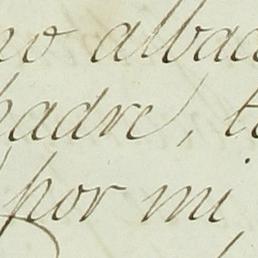 no albac
padre, t
por mi